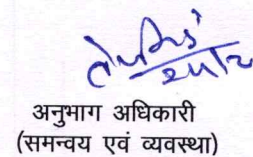 अनुभाग अधिकारी
(समन्वय एवं व्यवस्था)